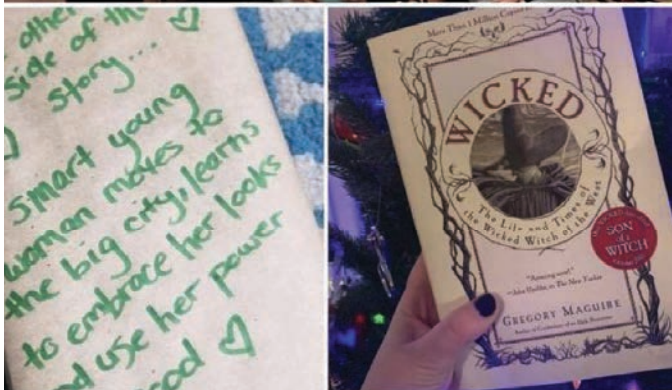 other
side of the
story... ♡
♡
smart young
woman moves to
the big city, learns
to embrace her looks
and use her power
good ♡
More Than 1 Million Copies
WICKED
The Life and Times of
the Wicked Witch of the West
SON
of a
WITCH
"Amazing novel."
—John Updike, in The New Yorker
GREGORY MAGUIRE
Author of Confessions of an Ugly Stepsister